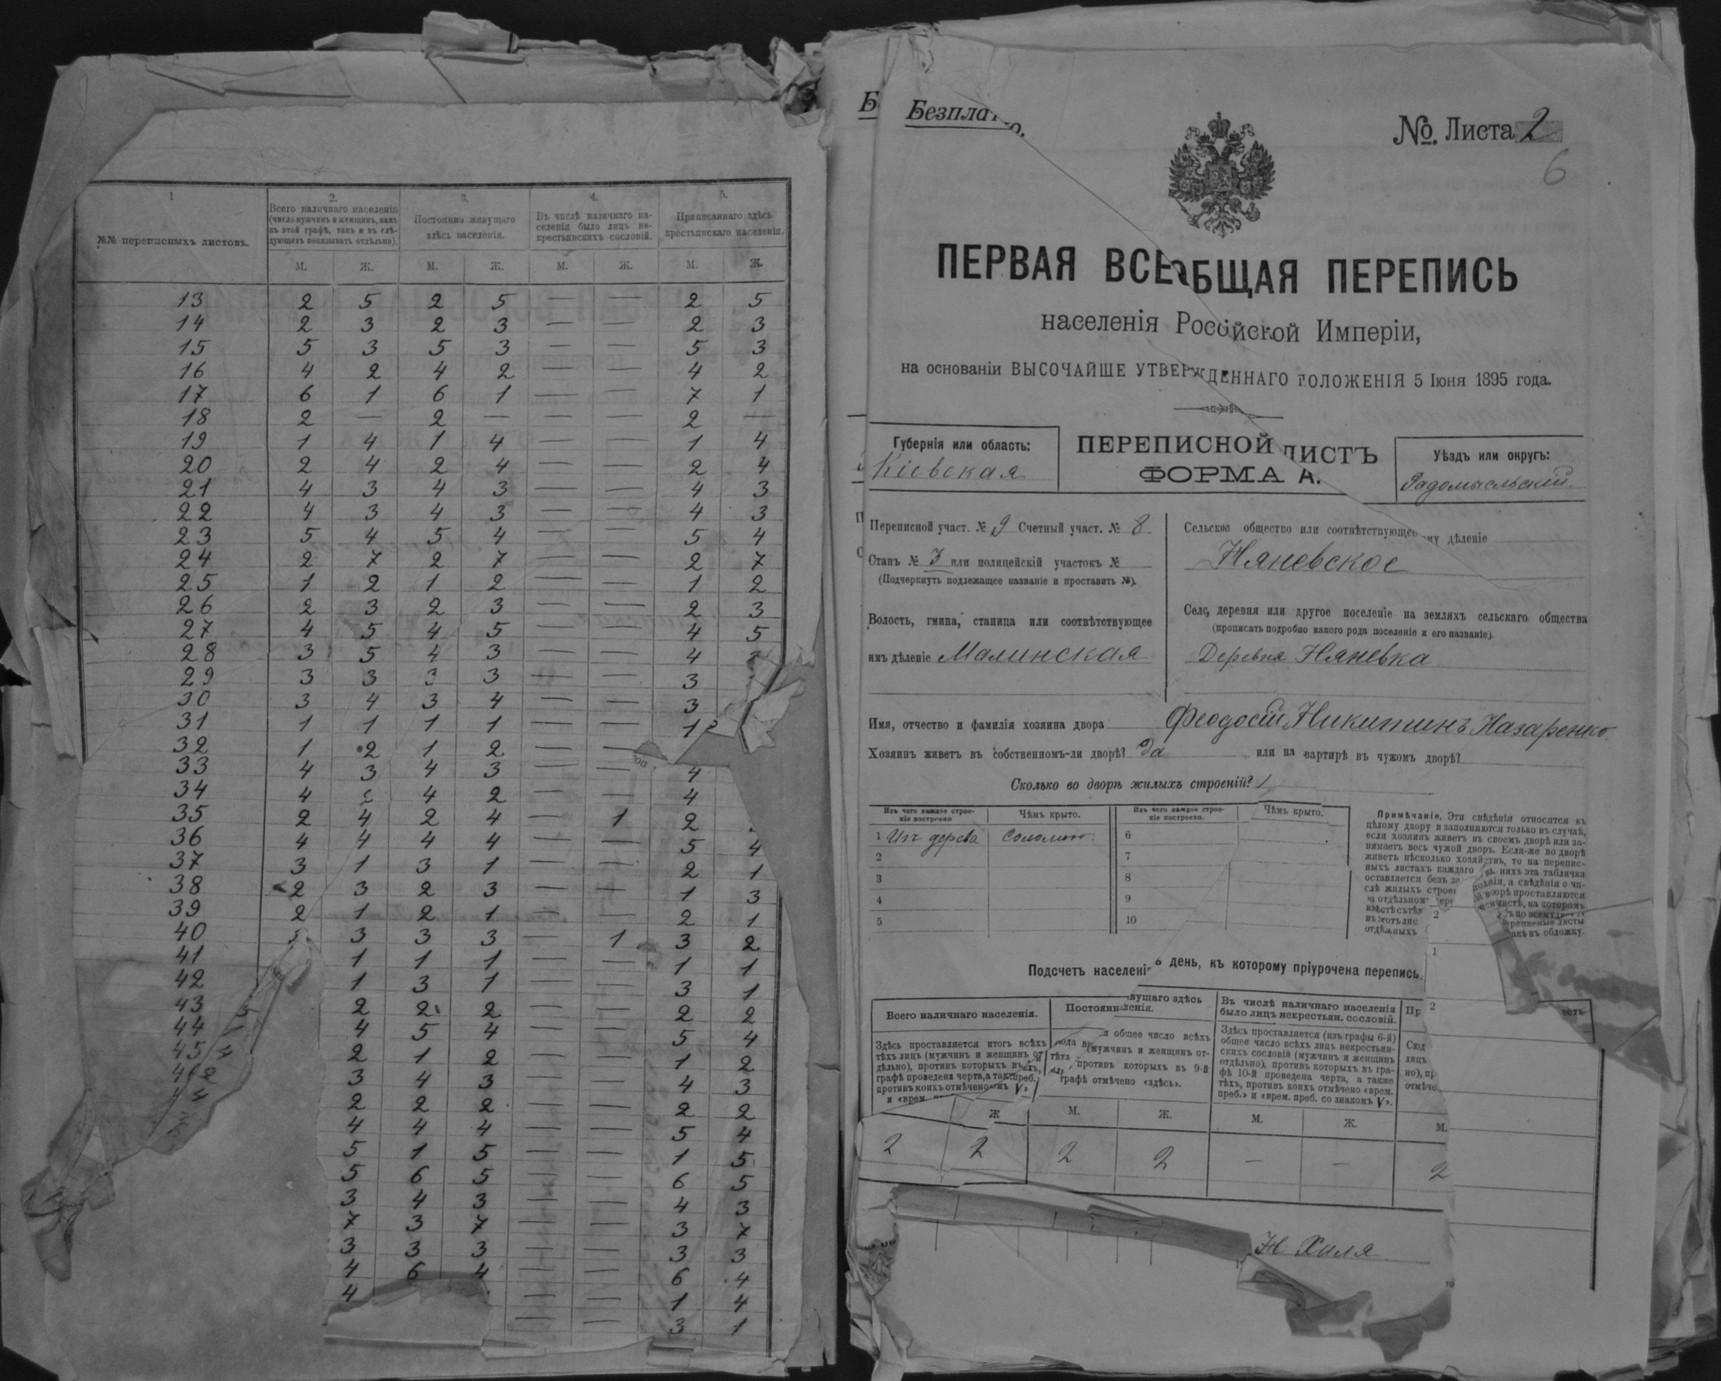 1
2.
3.
4.
5.
№№ переписныхъ листовъ.
Всего наличнаго населенія
(число мужчинъ и женщинъ, какъ
въ этой графѣ, такъ и въ слѣ-
дующихъ показывать отдѣльно).
Постоянно живущаго
здѣсь населенія.
Въ числѣ наличнаго на-
селенія было лицъ не-
крестьянскихъ сословій.
Приписаннаго здѣсь
крестьянскаго населенія.
М. Ж. М. Ж. М. Ж. М. Ж.
13 2 5 2 5 — — 2 5
14 2 3 2 3 — — 2 3
15 5 3 5 3 — — 5 3
16 4 2 4 2 — — 4 2
17 6 1 6 1 — — 7 1
18 2 — 2 — — — 2 —
19 1 4 1 4 — — 1 4
20 2 4 2 4 — — 2 4
21 4 3 4 3 — — 4 3
22 4 3 4 3 — — 4 3
23 5 4 5 4 — — 5 4
24 2 7 2 7 — — 2 7
25 1 2 1 2 — — 1 2
26 2 3 2 3 — — 2 3
27 4 5 4 5 — — 4 5
28 3 5 4 3 — — 4
29 3 3 3 3 — — 3
30 3 4 3 4 — — 3
31 1 1 1 1 — — 1
32 1 2 1 2 —
33 4 3 4 3 — — 4
34 4 4 2 — — 4
35 2 4 2 4 — 1 2
36 4 4 4 4 — — 5 4
37 3 1 3 1 — — 2 1
38 2 3 2 3 — — 1 3
39 2 1 2 1 — — 2 1
40 3 3 3 — 1 3 2
41 1 1 1 — — 1 1
42 1 3 1 — — 3 1
43 2 2 2 — — 2 2
44 4 5 4 — — 5 4
45 2 1 2 — — 1 2
3 4 3 — — 4 3
2 2 2 — — 2 2
4 4 4 — — 5 4
5 1 5 — — 1 5
5 6 5 — — 6 5
3 4 3 — — 4 3
7 3 7 — — 3 7
3 3 3 — — 3 3
4 6 4 — — 6 4
4 — — 1 4
— — 3 1
Безпла
№. Листа 2
6
ПЕРВАЯ ВСЕОБЩАЯ ПЕРЕПИСЬ
населенія Россійской Имперіи,
на основаніи ВЫСОЧАЙШЕ УТВЕРЖДЕННАГО ПОЛОЖЕНІЯ 5 Іюня 1895 года.
Губернія или область:
Кіевская
ПЕРЕПИСНОЙ ЛИСТЪ
ФОРМА А.
Уѣздъ или округъ:
Радомысльскій.
Переписной участ. № 9 Счетный участ. № 8
Станъ № 3 или полицейскій участокъ №
(Подчеркнуть подлежащее названіе и проставить №).
Волость, гмина, станица или соотвѣтствующее
имъ дѣленіе Малинская
Сельское общество или соотвѣтствующее му дѣленіе
Няневское
Село, деревня или другое поселеніе на земляхъ сельскаго общества
(прописать подробно какого рода поселеніе и его названіе).
Деревня Няневка
Имя, отчество и фамилія хозяина двора Феодосій Никитинъ Назаренко
Хозяинъ живетъ въ собственномъ-ли дворѣ? Да или на квартирѣ въ чужомъ дворѣ?
Сколько во дворѣ жилыхъ строеній? 1
Изъ чего каждое строе-
ніе построено
Чѣмъ крыто.
Изъ чего каждое строе-
ніе построено.
Чѣмъ крыто.
1 Изъ дерева Соломою 6
2 7
3 8
4 9
5 10
Примѣчаніе. Эти свѣдѣнія относятся къ
цѣлому двору и заполняются только въ случаѣ,
если хозяинъ живетъ въ своемъ дворѣ или за-
нимаетъ весь чужой дворъ. Если-же во дворѣ
живетъ нѣсколько хозяйствъ, то на перепис-
ныхъ листахъ каждаго въ нихъ эта табличка
оставляется безъ
слѣ жилыхъ строе
отдѣльном
отдѣльныхъ
Подсчетъ населені день, къ которому пріурочена перепись.
Всего наличнаго населенія.
Здѣсь проставляется итогъ всѣхъ
тѣхъ лицъ (мужчинъ и женщинъ от
дѣльно), противъ которыхъ въ
графѣ проведена черта, а также преб.
противъ коихъ отмѣчено
Постоянно вущаго здѣсь
ленія.
общее число всѣхъ
(мужчинъ и женщинъ от-
противъ которыхъ въ 9-й
графѣ отмѣчено «здѣсь».
Въ числѣ наличнаго населенія
было лицъ некрестьян. сословій.
Здѣсь проставляется (изъ графы 6-й)
общее число всѣхъ лицъ некрестьян-
скихъ сословій (мужчинъ и женщинъ
отдѣльно), противъ которыхъ въ гра-
фѣ 10-й проведена черта, а также
тѣхъ, противъ коихъ отмѣчено «врем.
преб.» и «врем. преб. со знакомъ V».
Ж М. Ж. М. Ж. М.
2 2 2 2 — — 2
Н Хиля